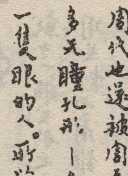 周代也還被
多无瞳孔形
一隻眼的人。所